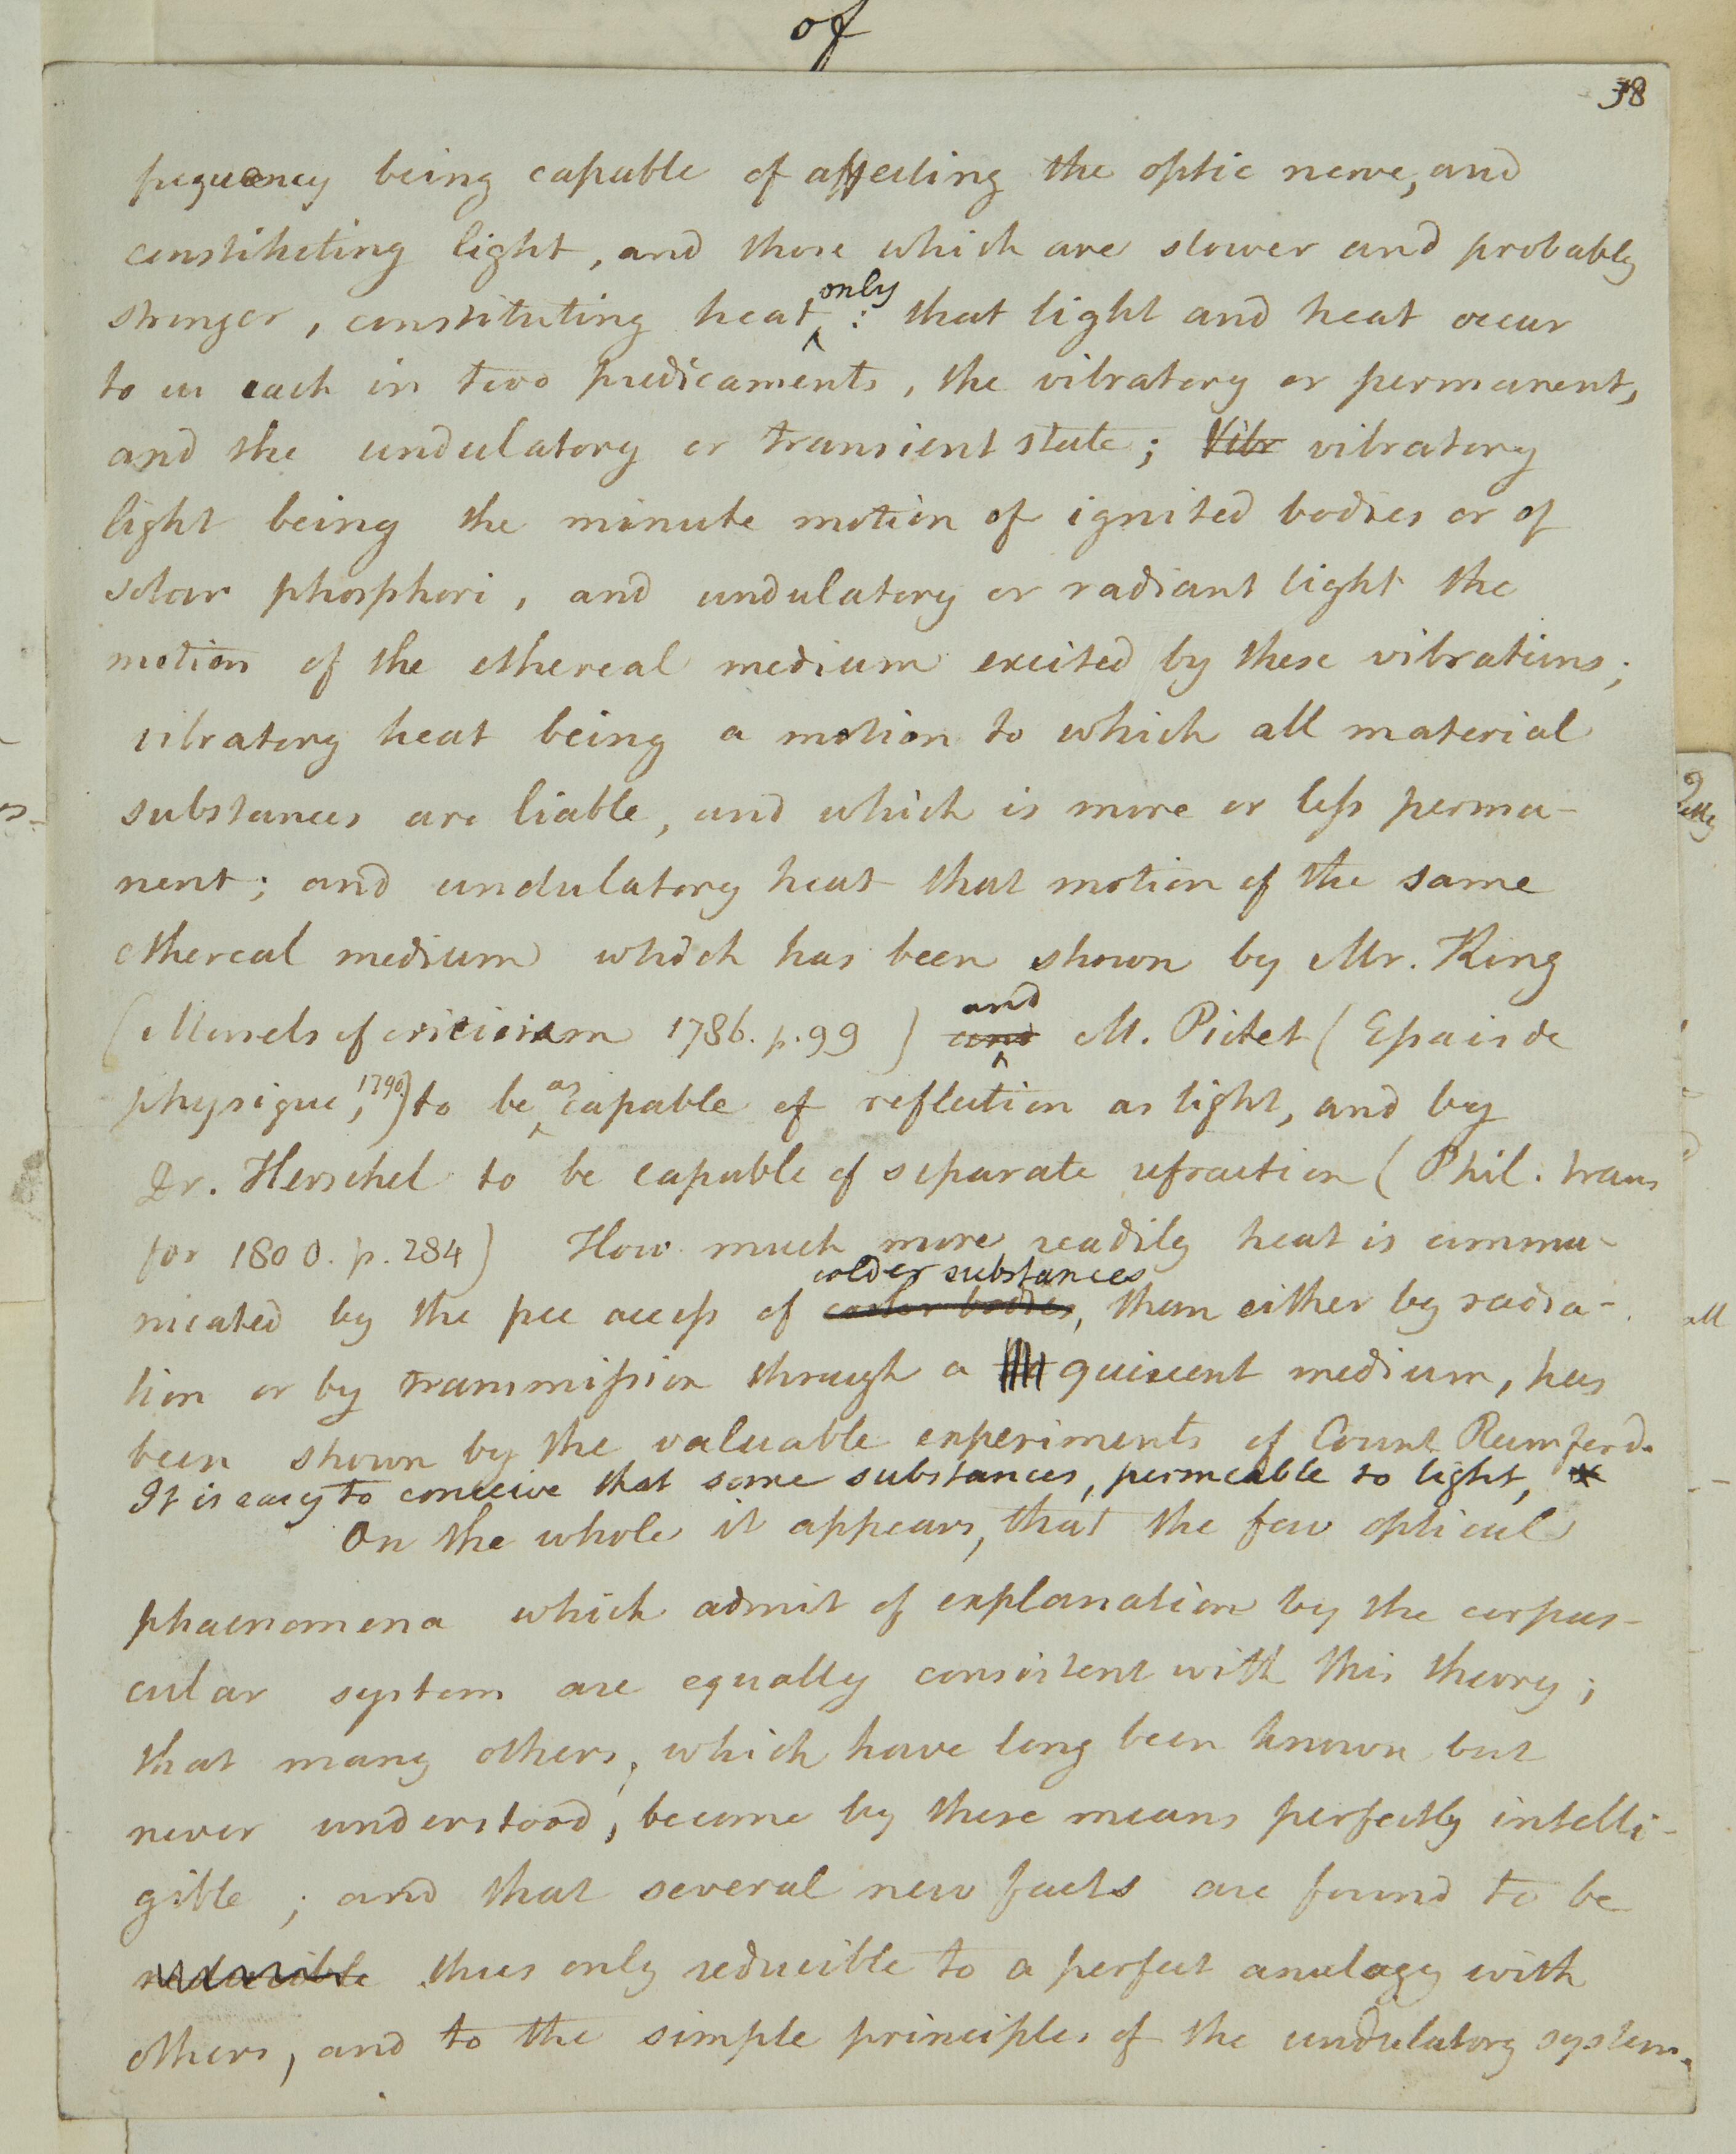 of
38
frequency being capable of affecting the optic nerve, and
constituting light, and those which are slower and probably
stronger, constituting heat only : that light and heat occur
to us each in two predicaments, the vibratory or permanent,
and the undulatory or transient state; Vibr vibratory
light being the minute motion of ignited bodies or of
solar phosphori, and undulatory or radiant light the
motion of the ethereal medium excited by these vibrations;
vibratory heat being a motion to which all material
substances are liable, and which is more or less perma-
nent; and undulatory heat that motion of the same
ethereal medium which has been shown by Mr. King
(Morsels of criticism 1786. p. 99) and and M. Pictet (Essais de
physique, 1790.) to be as capable of reflection as light, and by
Dr. Herschel to be capable of separate refraction (Phil. trans
for 1800. p. 284) How much more readily heat is commu-
nicated by the free access of colder substances cooler bodies, than either by radia-
tion or by transmission through a quiescent medium, has
been shown by the valuable experiments of Count Rumford.
It is easy to conceive that some substances, permeable to light, *
On the whole it appears, that the few optical
phaenomena which admit of explanation by the corpus-
cular system are equally consistent with this theory;
that many others, which have long been known but
never understood, become by these means perfectly intelli-
gible; and that several new facts are found to be
reducible thus only reducible to a perfect analogy with
others, and to the simple principles of the undulatory system.
all